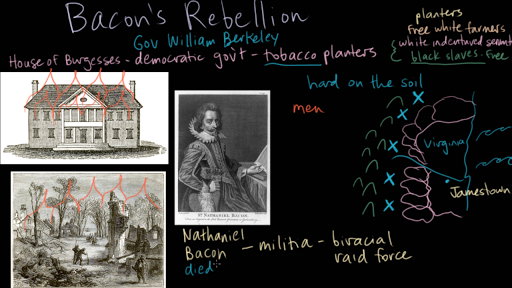 Bacon's Rebellion
Gov William Berkeley
House of Burgesses - democratic gov't - tobacco planters
planters
free white farmers
white indentured servants
black slaves - free
hard on the soil
men
Virginia
Jamestown
Sr. NATHANIEL BACON.
Nathaniel
Bacon
died
- militia - biracial
raid force